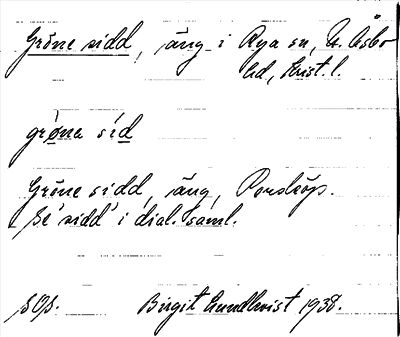 Gröne sidd, äng i Rya sn, N. Åsbo
hd, Krist. l.
grøna sid
Gröne sidd, äng,
Se 'sidd' i dial. saml.
Birgit Lundkvist 1938.